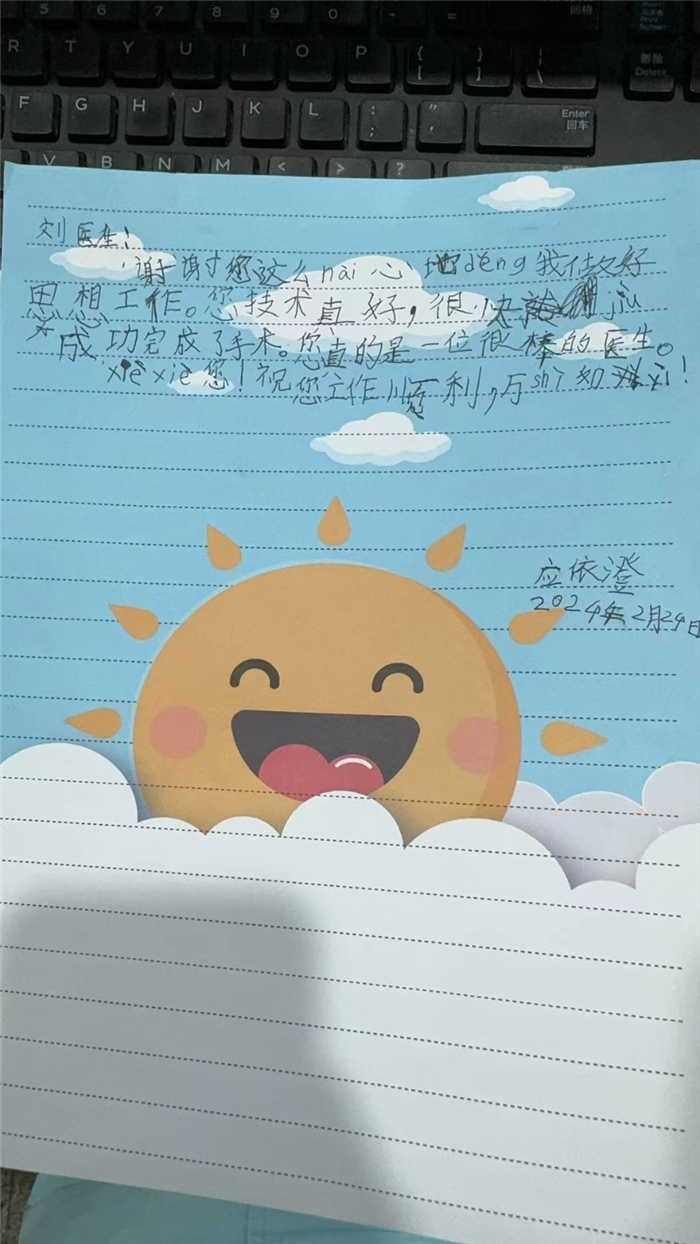 5 6 7 8 9 0 - =
回格
Print
Screen
R T Y U I O P { [ } ] | \
删除
Delete
F G H J K L : ; " ' Enter
回车
V B N M < > ?
刘医生：
谢谢您这么nài心地děng我做好
思想工作。您技术真好，很快jiù
成功完成了手术。您真的是一位很棒的医生。
xiè xiè您！祝您工作顺利，万shì如yì！
应依澄
2024年2月24日